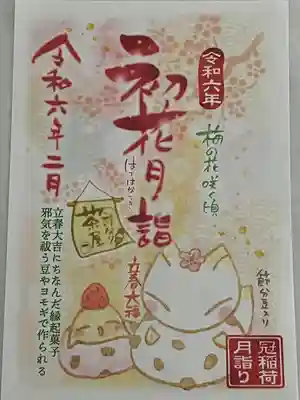 令和六年
梅の花咲く頃
初花月詣
はつはなづき
令和六年二月
茶屋
立春大福
節分豆入り
立春大吉にちなんだ縁起菓子
邪気を祓う豆やヨモギで作られる
冠稲荷
月詣り